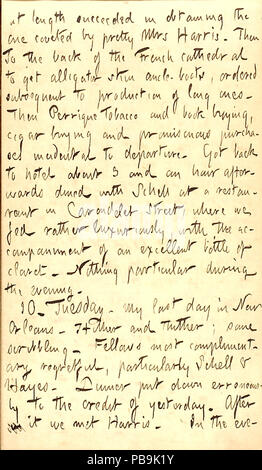 at length succeeded in obtaining the
one coveted by pretty Mrs Harris. Then
to the back of the French cathedral
to get alligator skin ancle-boots, ordered
subsequent to production of long ones.
Then Perrique tobacco and book buying,
cigar buying and promiscuous purcha-
ses incidental to departure. Got back
to hotel about 3 and an hour after-
wards dined with Schell at a restau-
rant in Carondelet street, where we
fed rather luxuriously, with the ac-
companiment of an excellent bottle of
claret. Nothing particular during
the evening.
10. Tuesday. My last day in New
Orleans. Hither and thither; some
scribbling. Fellows most compliment-
ary regretful, particularly Schell &
Hayes. Dinner put down erroneous-
ly to the credit of yesterday. After
it we met Harris. In the eve-
alamy
Image ID: PB9K1Y
www.alamy.com